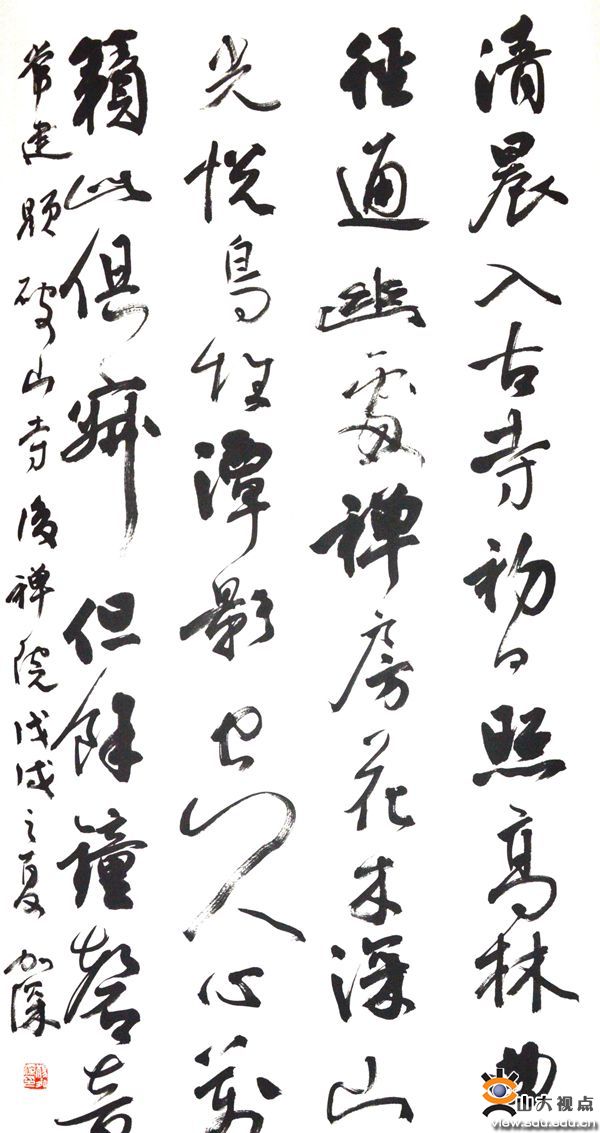 清晨入古寺初日照高林曲
徑通幽處禅房花木深山
光悦鳥性潭影空人心萬
籟此俱寂但餘鐘磬音
常建題破山寺後禅院戊戌之夏 加深
山大视点
view.sdu.edu.cn